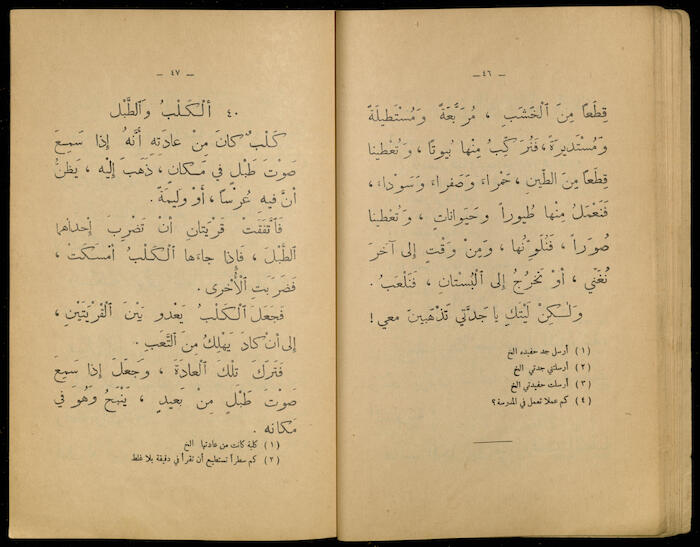 — ٤٦ —
قِطَعًا مِنَ ٱلْخَشَبِ ، مُرَبَّعَةً وَمُسْتَطِيلَةً
وَمُسْتَدِيرَةً ، فَنُرَكِّبُ مِنْها بُيوتًا ، وَتُعْطِينا
قِطَعًا مِنَ الطِّينِ ، حَمْراءَ وَصَفراءَ وَسَوْداءَ ،
فَنَعْمَلُ مِنْها طُيوراً وَحَيَواناتٍ ، وَتُعْطِينا
صُوَراً ، فَنُلَوِّنُها ، وَمِنْ وَقْتٍ إِلى آخَرَ
نُغَنِّي ، أَوْ نَخرُجُ إِلى ٱلبُسْتانِ ، فَنَلْعَبُ .
وَلٰكِنْ لَيْتَكِ يا جَدَّتِي تَذْهَبِينَ مَعِي !
(١) أرسل جد حفيده الخ
(٢) أرسلتني جدتي الخ
(٣) أرسلت حفيدتي الخ
(٤) كم عملا تعمل في المدرسة ؟
— ٤٧ —
٤٠ اَلْكَلْبُ وَالطَّبْل
كَلْبٌ كانَ مِنْ عادَتِهِ أَنَّهُ إِذا سَمِعَ
صَوْتَ طَبْلٍ فِي مَكان ، ذَهَبَ إِلَيْهِ ، يَظُنُّ
أَنَّ فيهِ عُرْسًا ، أَوْ وَلِيمَةً .
فَاتَّفَقَتْ قَرْيَتانِ أَنْ تَضْرِبَ إِحْداهُما
الطَّبْلَ ، فَإِذا جاءَها ٱلْكَلْبُ أَمْسَكَتْ ،
فَضَرَبَتِ ٱلْأُخْرى .
فَجَعَلَ ٱلْكَلْبُ يَعْدو بَيْنَ ٱلْقَرْيَتَيْنِ ،
إِلى أَنْ كادَ يَهْلِكُ مِنَ ٱلتَّعَبِ .
فَتَرَكَ تِلْكَ ٱلْعادَةَ ، وَجَعَلَ إِذا سَمِعَ
صَوْتَ طَبْلٍ مِنْ بَعِيدٍ ، يَنْبَحُ وَهُوَ فِي
مَكانِهِ .
(١) كلبة كانت من عادتها الخ
(٢) كم سطراً تستطيع أن تقرأ في دقيقة بلا غلط